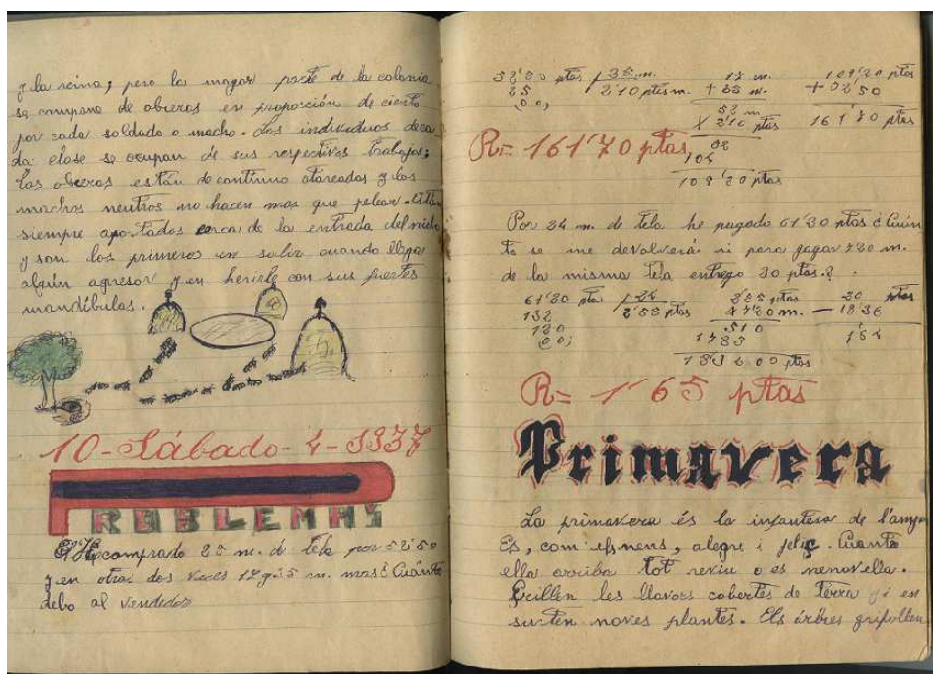 y la reina; pero la mayor parte de la colonia
se compone de obreros en proporción de ciento
por cada soldado o macho. Los individuos de ca-
da clase se ocupan de sus respectivos trabajos;
las obreras están de continuo atareadas y los
machos neutros no hacen mas que pelear. Están
siempre apostados cerca de la entrada del nido
y son los primeros en salir cuando llega
algún agresor y en herirle con sus fuertes
mandíbulas.
10-Sábado-4-1937
PROBLEMAS
comprado 25 m. de tela por 52'50
y en otras dos veces 17 y 35 m. mas ¿Cuánto
debo al vendedor
ptas 35 m.
25 2'10 ptas m.
00,
17 m.
+ 35 m.
52 m.
X 2'10 ptas
104
109'20 ptas
109'20 ptas
+ 52 50
161'70 ptas
R= 161'70 ptas
Por 24 m. de tela he pagado 61'20 ptas ¿Cuán-
to se me devolverá si para pagar 7'20 m.
de la misma tela entrego 20 ptas.?
61'20 ptas 24
132 2'55 ptas
120
00,
2'55 ptas
X 7'20 m.
510
1785
20 ptas
- 18'36
1'64
R= 1'65 ptas
Primavera
La primavera és la infantesa de l'any
Es, com els nens, alegre i feliç. Cuant
ella arriba tot reviu o es renovella.
Grillen les llavors cobertes de terra i en
surten noves plantes. Els árbres grifollen